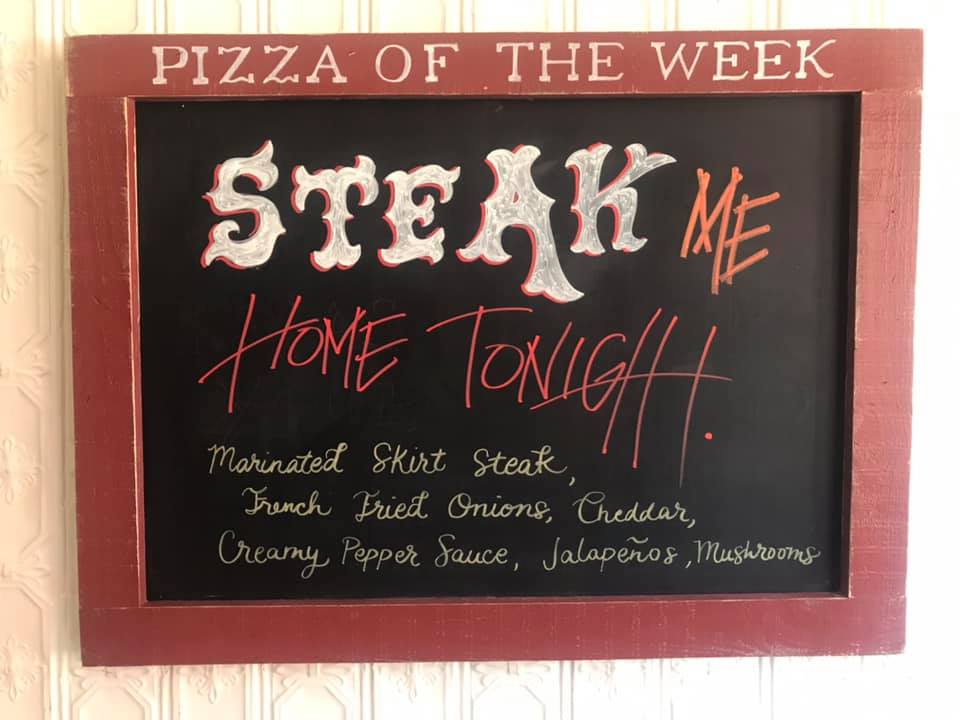 PIZZA OF THE WEEK
STEAK ME
HOME TONIGHT.
Marinated Skirt Steak,
French Fried Onions, Cheddar,
Creamy Pepper Sauce, Jalapeños, Mushrooms